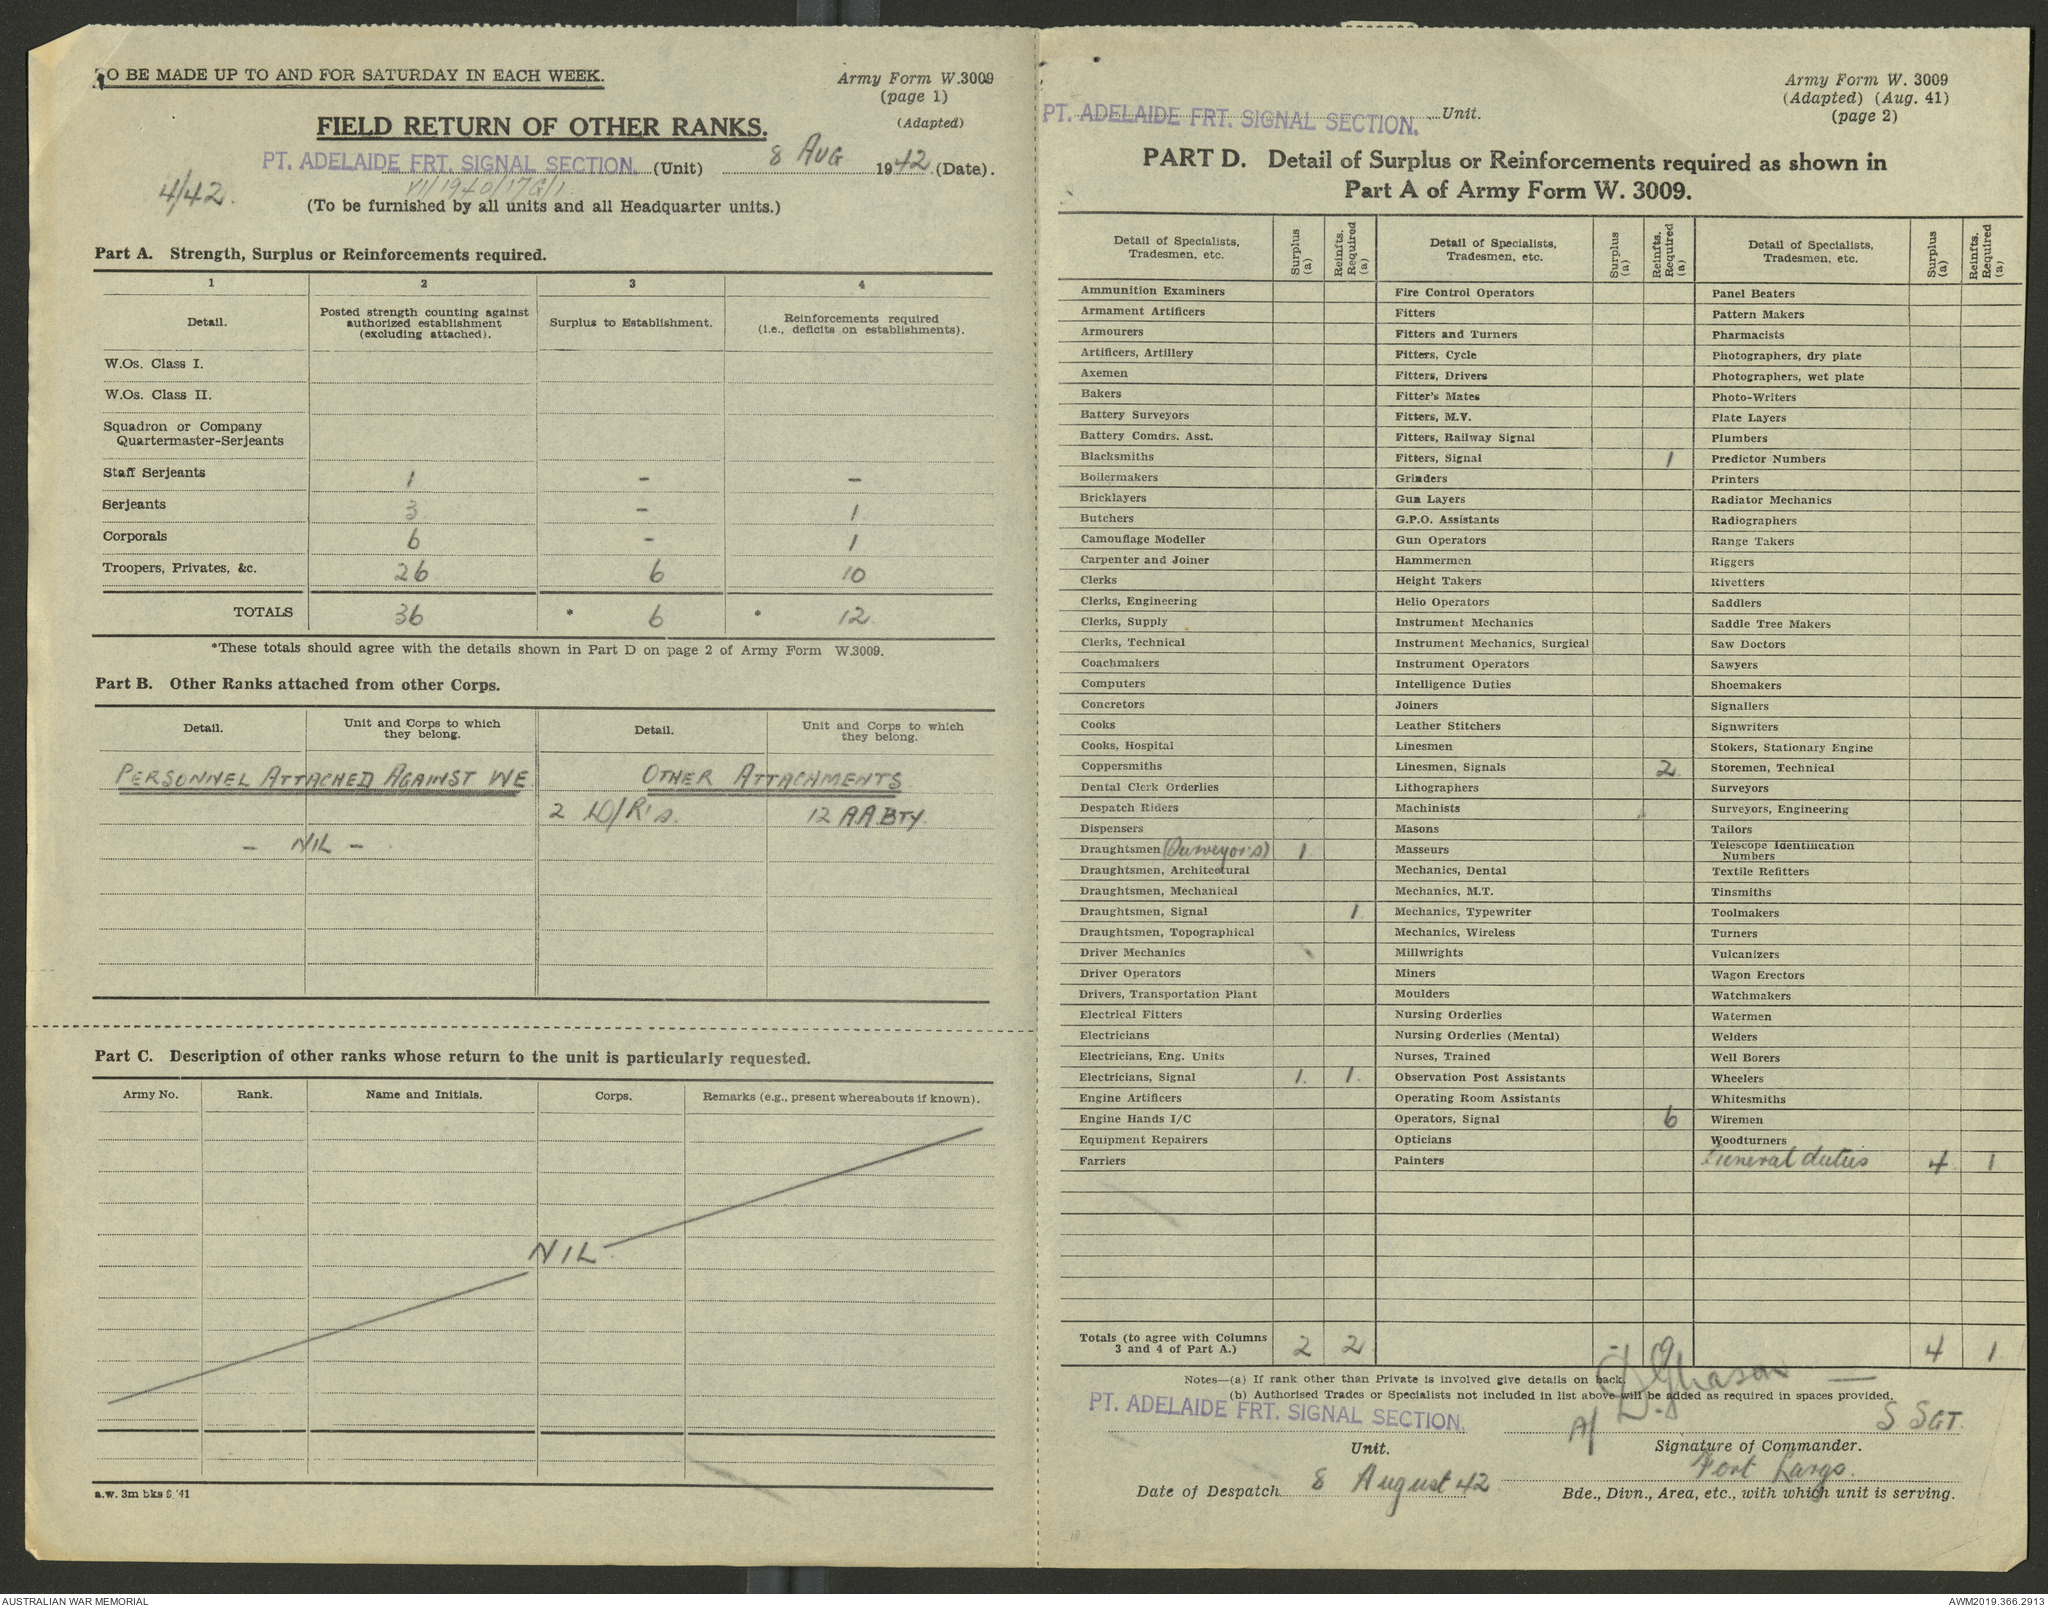 TO BE MADE UP TO AND FOR SATURDAY IN EACH WEEK.
Army Form W.3009
(page 1)
(Adapted)
FIELD RETURN OF OTHER RANKS.
PT. ADELAIDE FRT. SIGNAL SECTION. (Unit) 8 AUG 1942 (Date).
4/42. VII/1940/17G/1.
(To be furnished by all units and all Headquarter units.)
Part A. Strength, Surplus or Reinforcements required.
1 2 3 4
Detail. Posted strength counting against authorized establishment (excluding attached). Surplus to Establishment. Reinforcements required (i.e., deficits on establishments).
W.Os. Class I.
W.Os. Class II.
Squadron or Company
Quartermaster-Serjeants
Staff Serjeants 1 - -
Serjeants 3 - 1
Corporals 6 - 1
Troopers, Privates, &c. 26 6 10
TOTALS 36 * 6 * 12
*These totals should agree with the details shown in Part D on page 2 of Army Form W.3009.
Part B. Other Ranks attached from other Corps.
Detail. Unit and Corps to which they belong. Detail. Unit and Corps to which they belong.
PERSONNEL ATTACHED AGAINST WE OTHER ATTACHMENTS
2 D/R's. 12 AA BTY.
- NIL -
Part C. Description of other ranks whose return to the unit is particularly requested.
Army No. Rank. Name and Initials. Corps. Remarks (e.g., present whereabouts if known).
NIL
a.w. 3m bks 8/41
Army Form W. 3009
(Adapted) (Aug. 41)
(page 2)
PT. ADELAIDE FRT. SIGNAL SECTION. Unit.
PART D. Detail of Surplus or Reinforcements required as shown in
Part A of Army Form W. 3009.
Detail of Specialists, Tradesmen, etc. Surplus (a) Reinfts. Required (a) Detail of Specialists, Tradesmen, etc. Surplus (a) Reinfts. Required (a) Detail of Specialists, Tradesmen, etc. Surplus (a) Reinfts. Required (a)
Ammunition Examiners Fire Control Operators Panel Beaters
Armament Artificers Fitters Pattern Makers
Armourers Fitters and Turners Pharmacists
Artificers, Artillery Fitters, Cycle Photographers, dry plate
Axemen Fitters, Drivers Photographers, wet plate
Bakers Fitter's Mates Photo-Writers
Battery Surveyors Fitters, M.V. Plate Layers
Battery Comdrs. Asst. Fitters, Railway Signal Plumbers
Blacksmiths Fitters, Signal 1 Predictor Numbers
Boilermakers Grinders Printers
Bricklayers Gun Layers Radiator Mechanics
Butchers G.P.O. Assistants Radiographers
Camouflage Modeller Gun Operators Range Takers
Carpenter and Joiner Hammermen Riggers
Clerks Height Takers Rivetters
Clerks, Engineering Helio Operators Saddlers
Clerks, Supply Instrument Mechanics Saddle Tree Makers
Clerks, Technical Instrument Mechanics, Surgical Saw Doctors
Coachmakers Instrument Operators Sawyers
Computers Intelligence Duties Shoemakers
Concretors Joiners Signallers
Cooks Leather Stitchers Signwriters
Cooks, Hospital Linesmen Stokers, Stationary Engine
Coppersmiths Linesmen, Signals 2 Storemen, Technical
Dental Clerk Orderlies Lithographers Surveyors
Despatch Riders Machinists Surveyors, Engineering
Dispensers Masons Tailors
Draughtsmen (Surveyors) 1 Masseurs Telescope Identification Numbers
Draughtsmen, Architectural Mechanics, Dental Textile Refitters
Draughtsmen, Mechanical Mechanics, M.T. Tinsmiths
Draughtsmen, Signal 1 Mechanics, Typewriter Toolmakers
Draughtsmen, Topographical Mechanics, Wireless Turners
Driver Mechanics Millwrights Vulcanizers
Driver Operators Miners Wagon Erectors
Drivers, Transportation Plant Moulders Watchmakers
Electrical Fitters Nursing Orderlies Watermen
Electricians Nursing Orderlies (Mental) Welders
Electricians, Eng. Units Nurses, Trained Well Borers
Electricians, Signal 1 1 Observation Post Assistants Wheelers
Engine Artificers Operating Room Assistants Whitesmiths
Engine Hands I/C Operators, Signal 6 Wiremen
Equipment Repairers Opticians Woodturners
Farriers Painters General duties 4 1
Totals (to agree with Columns 3 and 4 of Part A.) 2 2 - 9 4 1
Notes—(a) If rank other than Private is involved give details on back.
(b) Authorised Trades or Specialists not included in list above will be added as required in spaces provided.
PT. ADELAIDE FRT. SIGNAL SECTION. A/ S SGT.
Unit. Signature of Commander.
Fort Largs.
Date of Despatch 8 August 42 Bde., Divn., Area, etc., with which unit is serving.
AUSTRALIAN WAR MEMORIAL AWM2019.366.2913